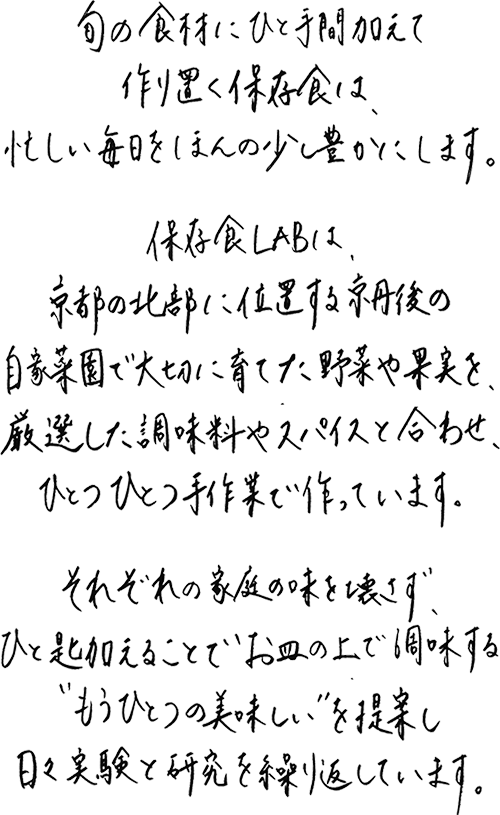 旬の食材にひと手間加えて
作り置く保存食は、
忙しい毎日をほんの少し豊かにします。
保存食LABは、
京都の北部に位置する京丹後の
自家菜園で大切に育てた野菜や果実を、
厳選した調味料やスパイスと合わせ、
ひとつひとつ手作業で作っています。
それぞれの家庭の味を壊さず、
ひと匙加えることで“お皿の上で調味する
“もうひとつの美味しい”を提案し
日々実験と研究を繰り返しています。